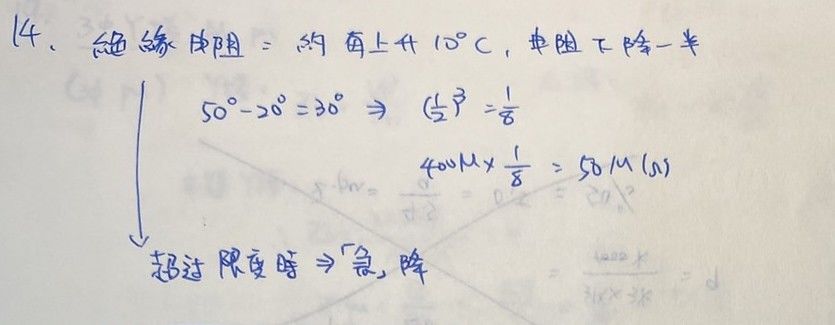 14、絕緣电阻：約每上升10°C，電阻下降一半
50°-20°=30° ⇒ (1/2)³ = 1/8
400M × 1/8 = 50M(Ω)
超过限度時⇒「急」降